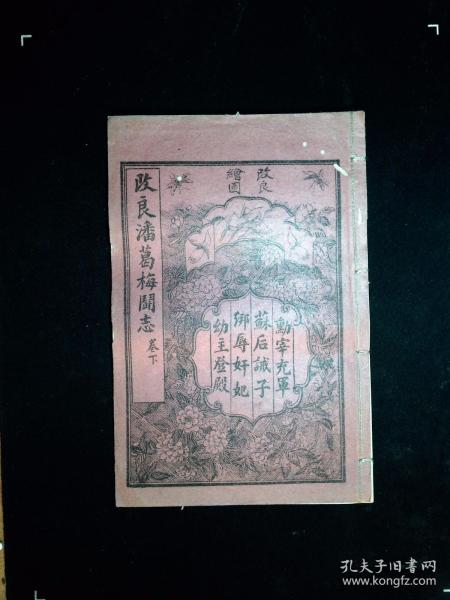 改良
繪圖
勳宰充軍
蘇后誡子
綁辱奸妃
幼主登殿
改良潘葛梅開志 卷下
孔夫子旧书网
www.kongfz.com